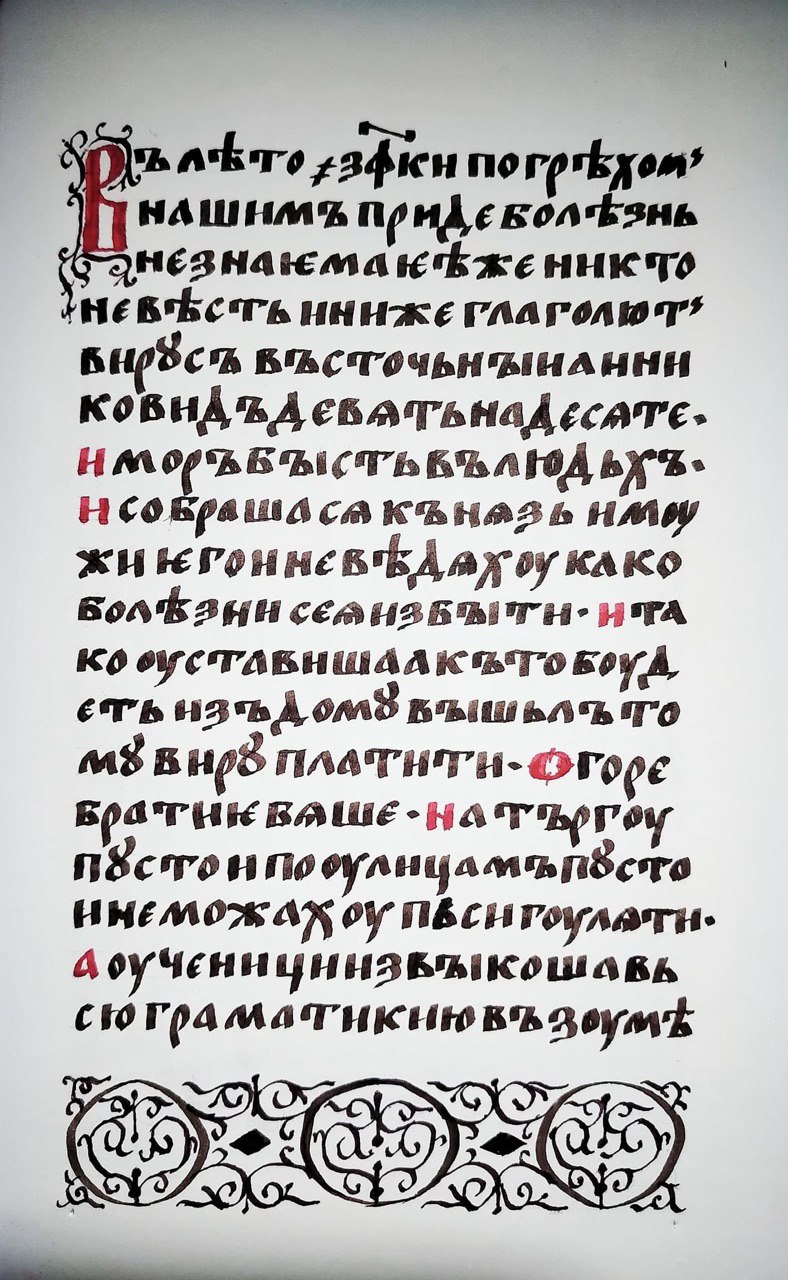 Въ лѣто ҂зф҃кн по грѣхомъ
нашимъ приде болѣзнь
незнаѥмаꙗ ѥѣже никто
не вѣсть ини же глаголютъ
вирꙋсъ въсточьнъіи а ини
ковидъ девѧтьнадесѧте·
и моръ бъість въ людьхъ·
и собрашасѧ кънѧзь и моу
жи ѥго и не вѣдѧхоу како
болѣзни сеѧ избъіти· и та
ко оуставиша а къто боуд
еть изъ домꙋ въішьлъ то
мꙋ вирꙋ платити· Ѻ горе
братиѥ вѧше· на търгоу
пꙋсто и по оулицамъ пꙋсто
и не можахоу пьси гоулѧти·
а оученици извъікоша вь
сю граматикию въ зоумѣ